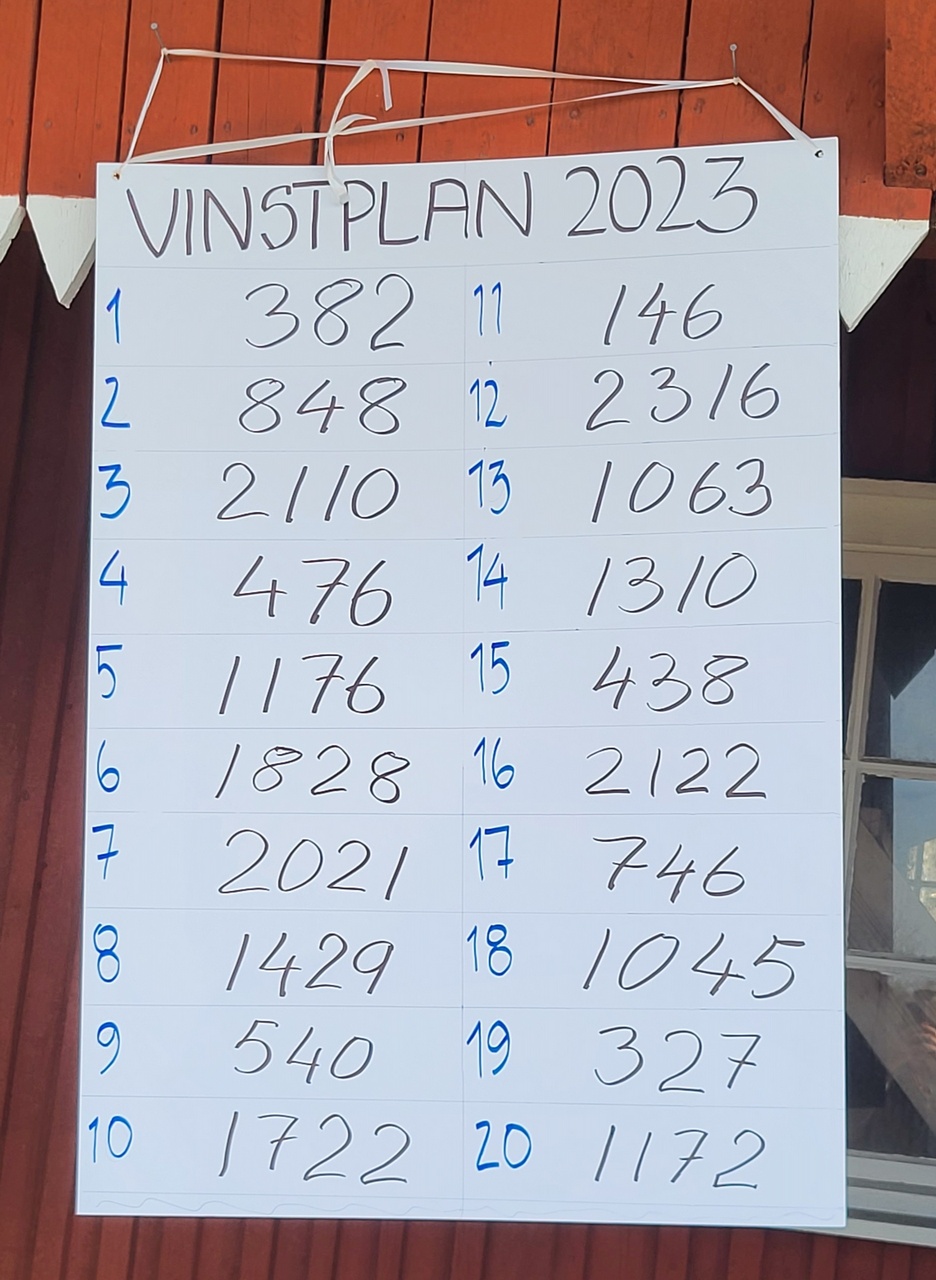 VINSTPLAN 2023
1 382 11 146
2 848 12 2316
3 2110 13 1063
4 476 14 1310
5 1176 15 438
6 1828 16 2122
7 2021 17 746
8 1429 18 1045
9 540 19 327
10 1722 20 1172